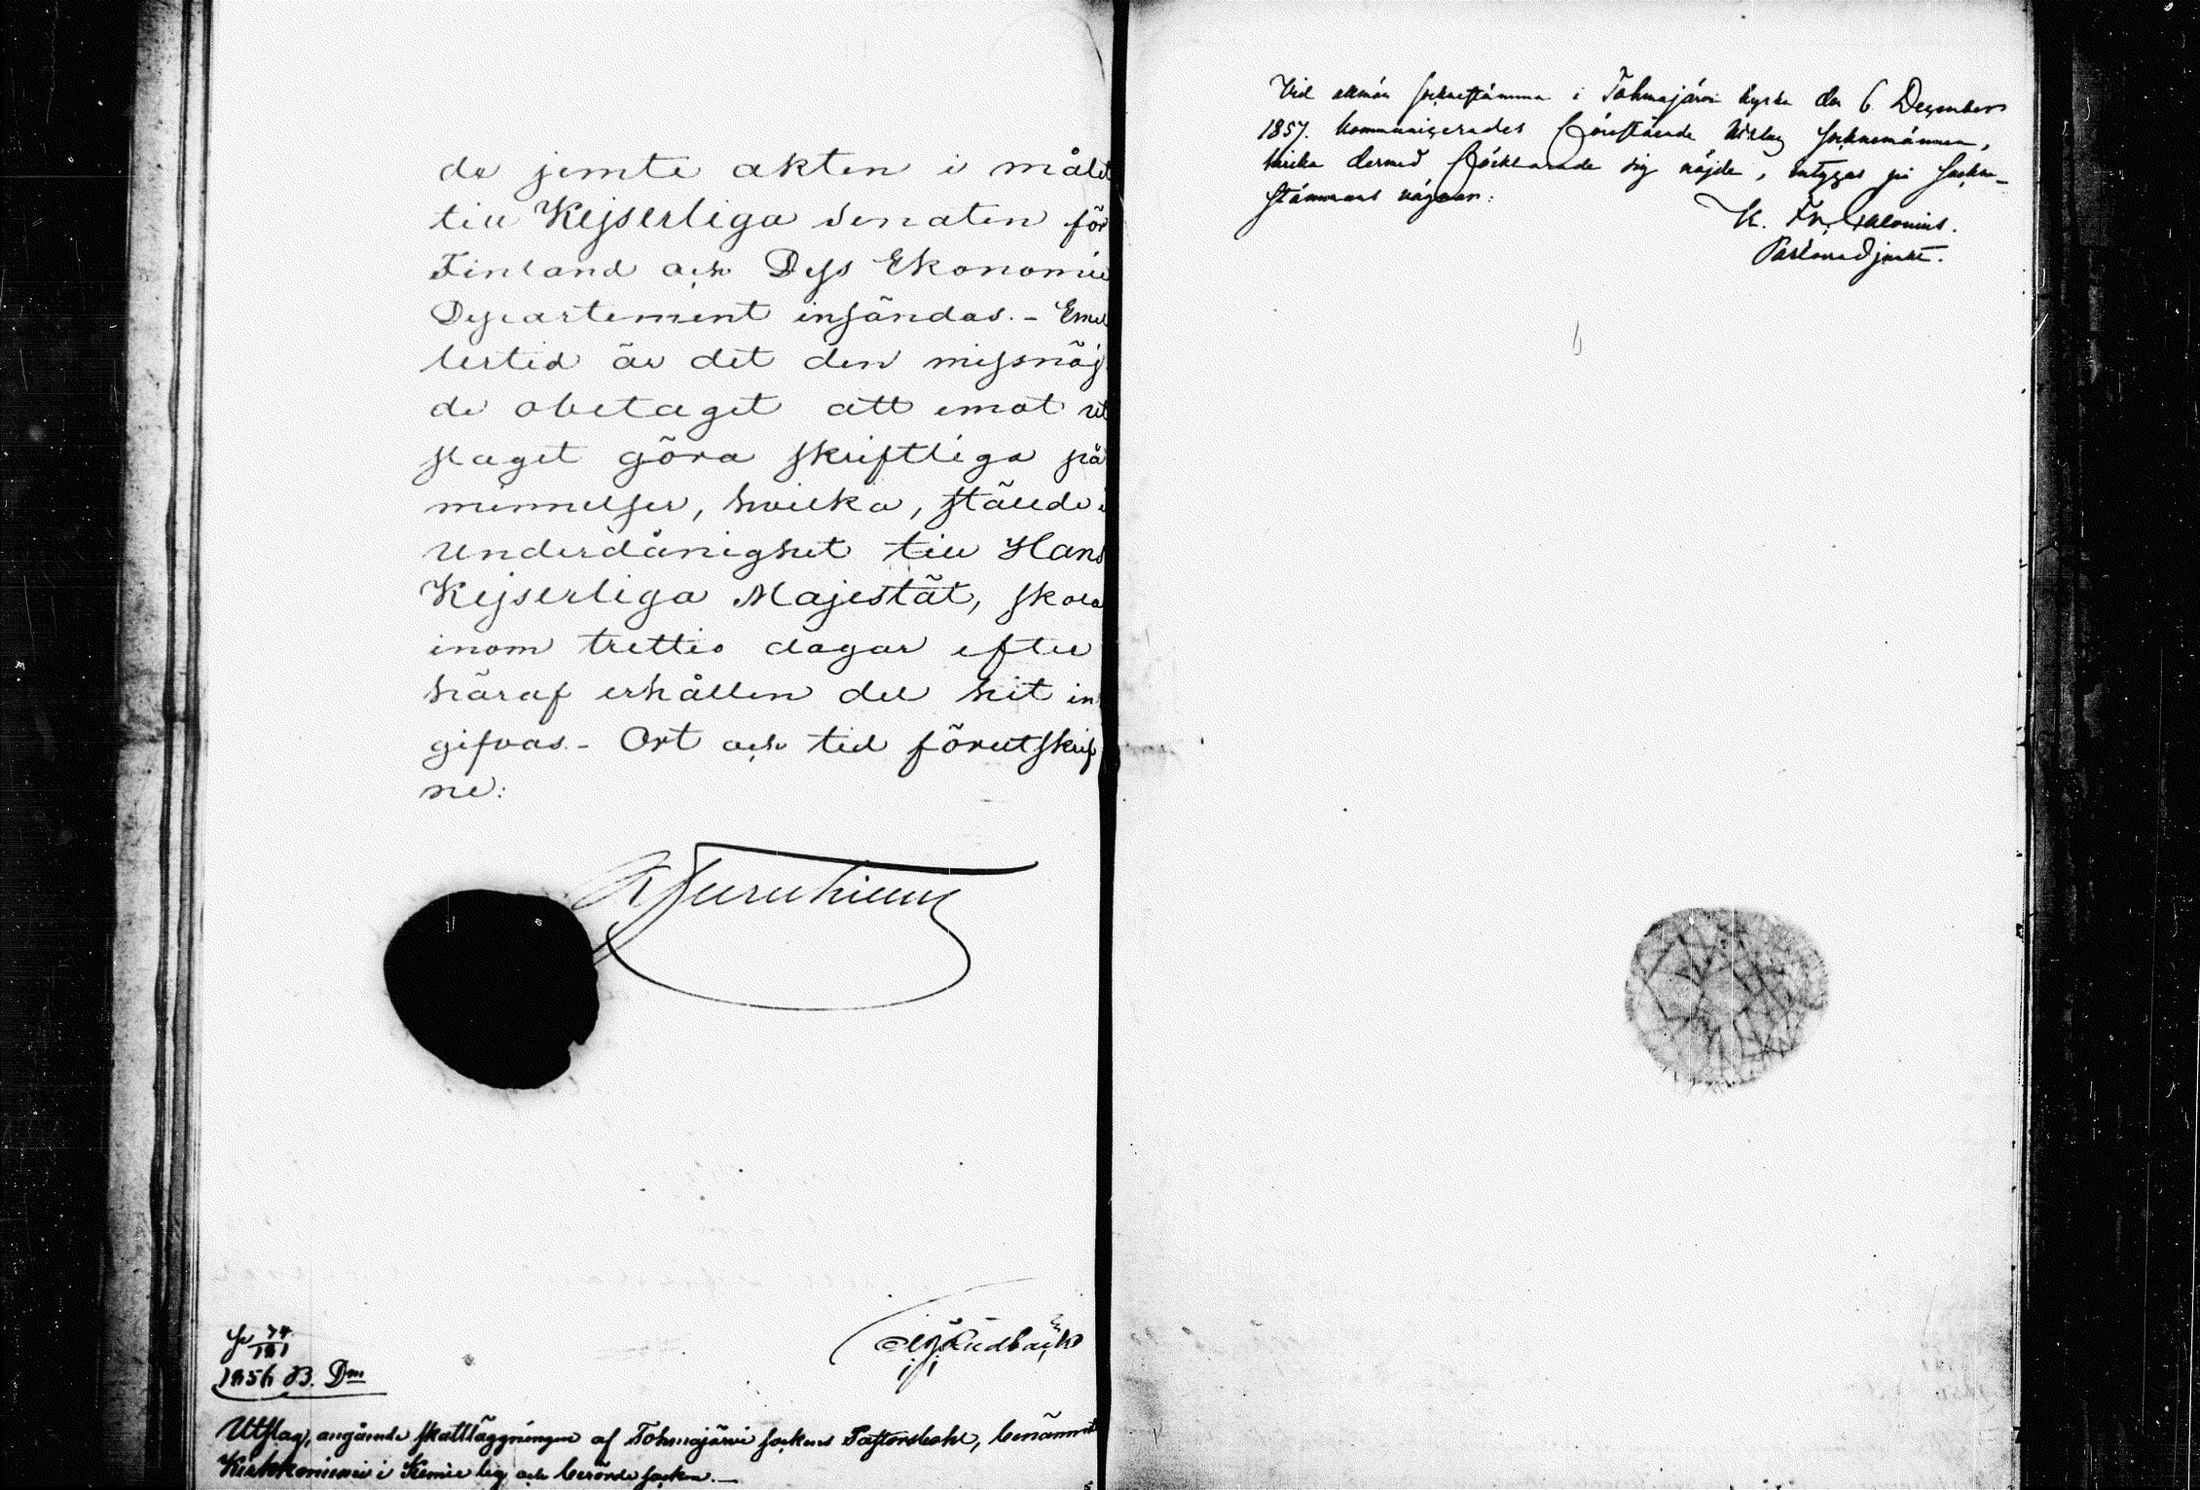 de jemte akten i målet
till Kejserliga Senaten för
Finland och Dess Ekonomie
Departement insändas. – Emel
lertid är det den missnöj
de obetaget att emot ut
slaget göra skriftliga på
minnelser, hvilka, stälde i
underdånighet till Hans
Kejserliga Majestät, skola
inom trettio dagar efter
häraf erhållen del hit in
gifvas. – Ort och tid förutskrif
ne:
74
1856 B. Dm
Utslag, angående skattläggningen af Tohmajärvi sockens Pastorsbohl, benämnt
Kirkkoniemi i Kemie by och berörde socken. –
Vid allmän sockenstämma i Tohmajärvi kyrka den 6 December
1857. kommunicerades förestående Utslag sockenmännen,
hvilka dermed förklarade sig nöjde, intygas på Socken-
stämmans vägnar:
K. Fr.
Pastorsadjunkt.